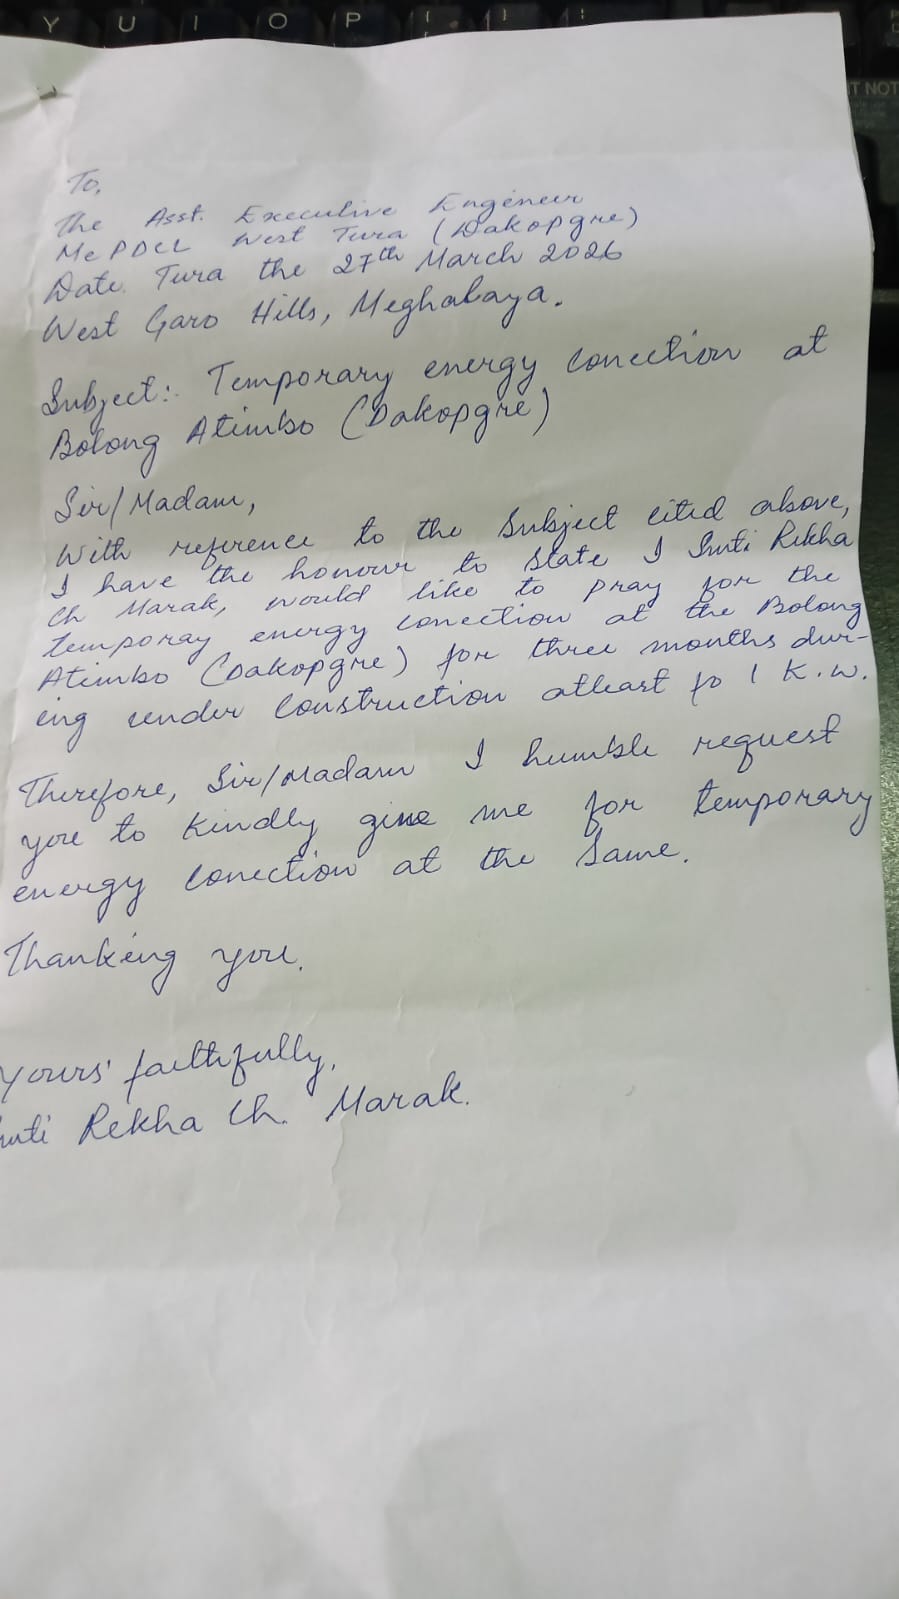 Y U I O P
IT NOT
To,
The Asst. Executive Engineer
MePDCL West Tura (Dakopgre)
Date Tura the 27th March 2026
West Garo Hills, Meghalaya.
Subject:- Temporary energy conection at
Bolong Atimbo (Dakopgre)
Sir/Madam,
With reference to the Subject cited above,
I have the honour to state I Smti Rekha
Ch Marak, would like to pray for the
temporay energy conection at the Bolong
Atimbo (Dakopgre) for three months dur-
ing under construction atleast fo 1 K.W.
Therefore, Sir/Madam I humble request
you to kindly give me for temporary
energy conection at the Same.
Thanking you.
Yours' faithfully,
Smti Rekha Ch. Marak.